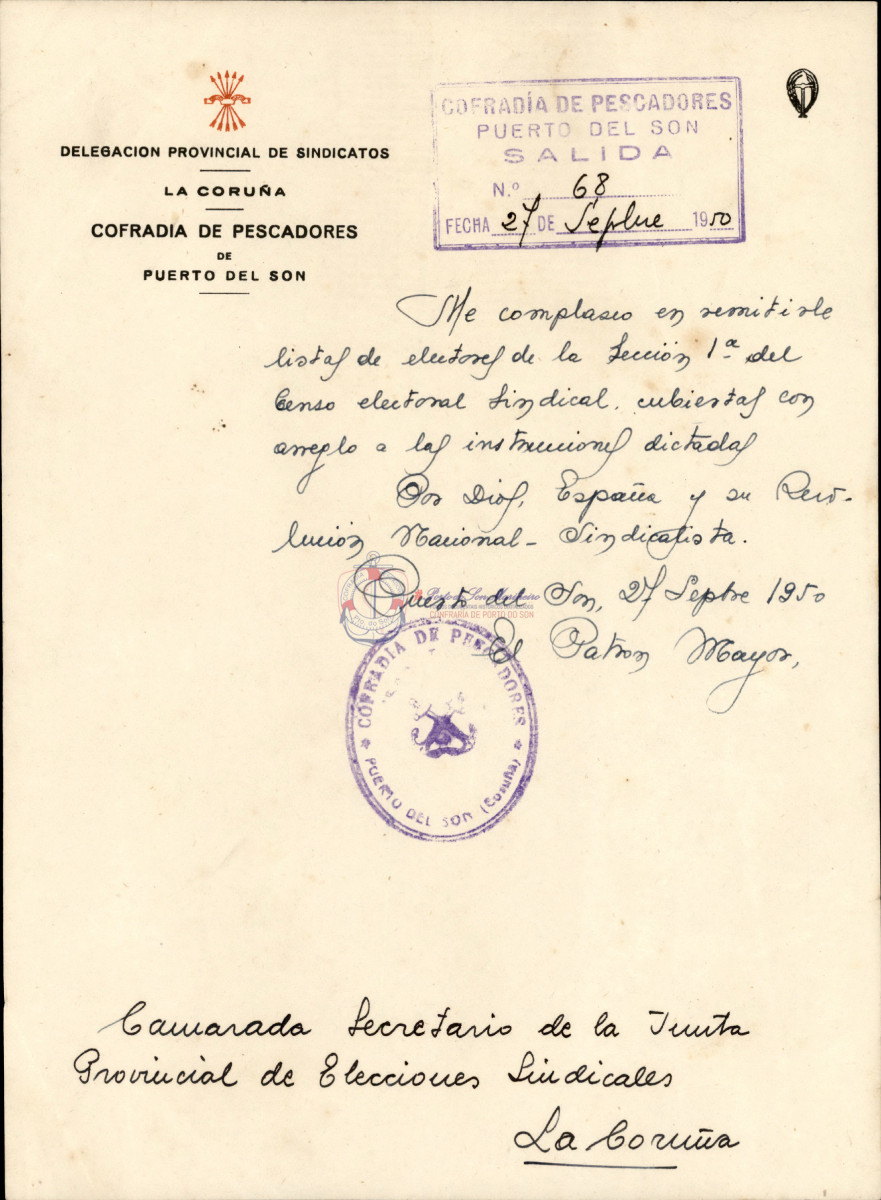 DELEGACION PROVINCIAL DE SINDICATOS
LA CORUÑA
COFRADIA DE PESCADORES
DE
PUERTO DEL SON
COFRADÍA DE PESCADORES
PUERTO DEL SON
SALIDA
N.º 68
FECHA 27 DE Sepbre 1950
Me complasco en remitirle
listas de electores de la Sección 1ª del
Censo electoral Sindical, cubiertas con
arreglo a las instrucciones dictadas
Por Dios, España y su Revo-
lución Nacional-Sindicalista.
Puerto del Son, 27 Sepbre 1950
El Patron Mayor,
CONFRARÍA DE PORTO DO SON
COFRADIA DE PESCADORES
PUERTO DEL SON (Coruña)
Camarada Secretario de la Junta
Provincial de Elecciones Sindicales
La Coruña